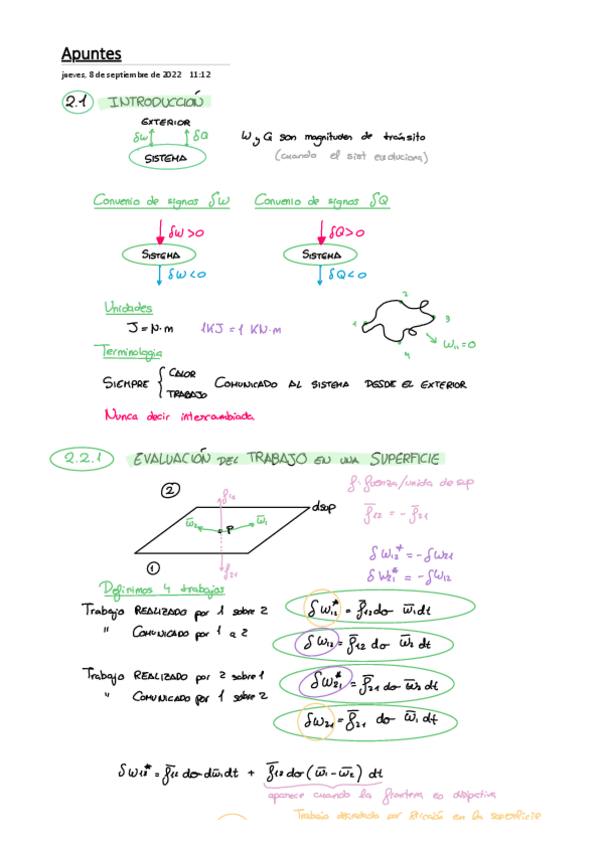 Apuntes
jueves, 8 de septiembre de 2022 11:12
2.1 INTRODUCCIÓN
EXTERIOR
δW δQ
SISTEMA
W y Q son magnitudes de tránsito
(cuando el sist evoluciona)
Convenio de signos δW
Convenio de signos δQ
δW>0
δQ>0
SISTEMA
SISTEMA
δW<0
δQ<0
Unidades
J = N·m 1KJ = 1 KN·m
1 2 3 4
W₁₁ = 0
Terminología
SIEMPRE { CALOR
TRABAJO
COMUNICADO AL SISTEMA DESDE EL EXTERIOR
Nunca decir intercambiada
2.2.1 EVALUACIÓN DEL TRABAJO EN UNA SUPERFICIE
f: fuerza/unida de sup
f̄₁₂ = - f̄₂₁
② f₁₂ dσup
w̄₂ P w̄₁
① f̄₂₁
δW₁₂* = -δW₂₁
δW₂₁* = -δW₁₂
Definimos 4 trabajos
Trabajo REALIZADO por 1 sobre 2 δW₁₂* = f̄₁₂ dσ w̄₁ dt
" COMUNICADO por 1 a 2 δW₁₂ = f̄₁₂ dσ w̄₂ dt
Trabajo REALIZADO por 2 sobre 1 δW₂₁* = f̄₂₁ dσ w̄₂ dt
" COMUNICADO por 1 sobre 2 δW₂₁ = f̄₂₁ dσ w̄₁ dt
δW₁₂* = f̄₁₂ dσ dw̄₁ dt + f̄₁₂ dσ (w̄₁ - w̄₂) dt
aparece cuando la frontera es disipativa
Trabajo degradado por fricción en la superficie